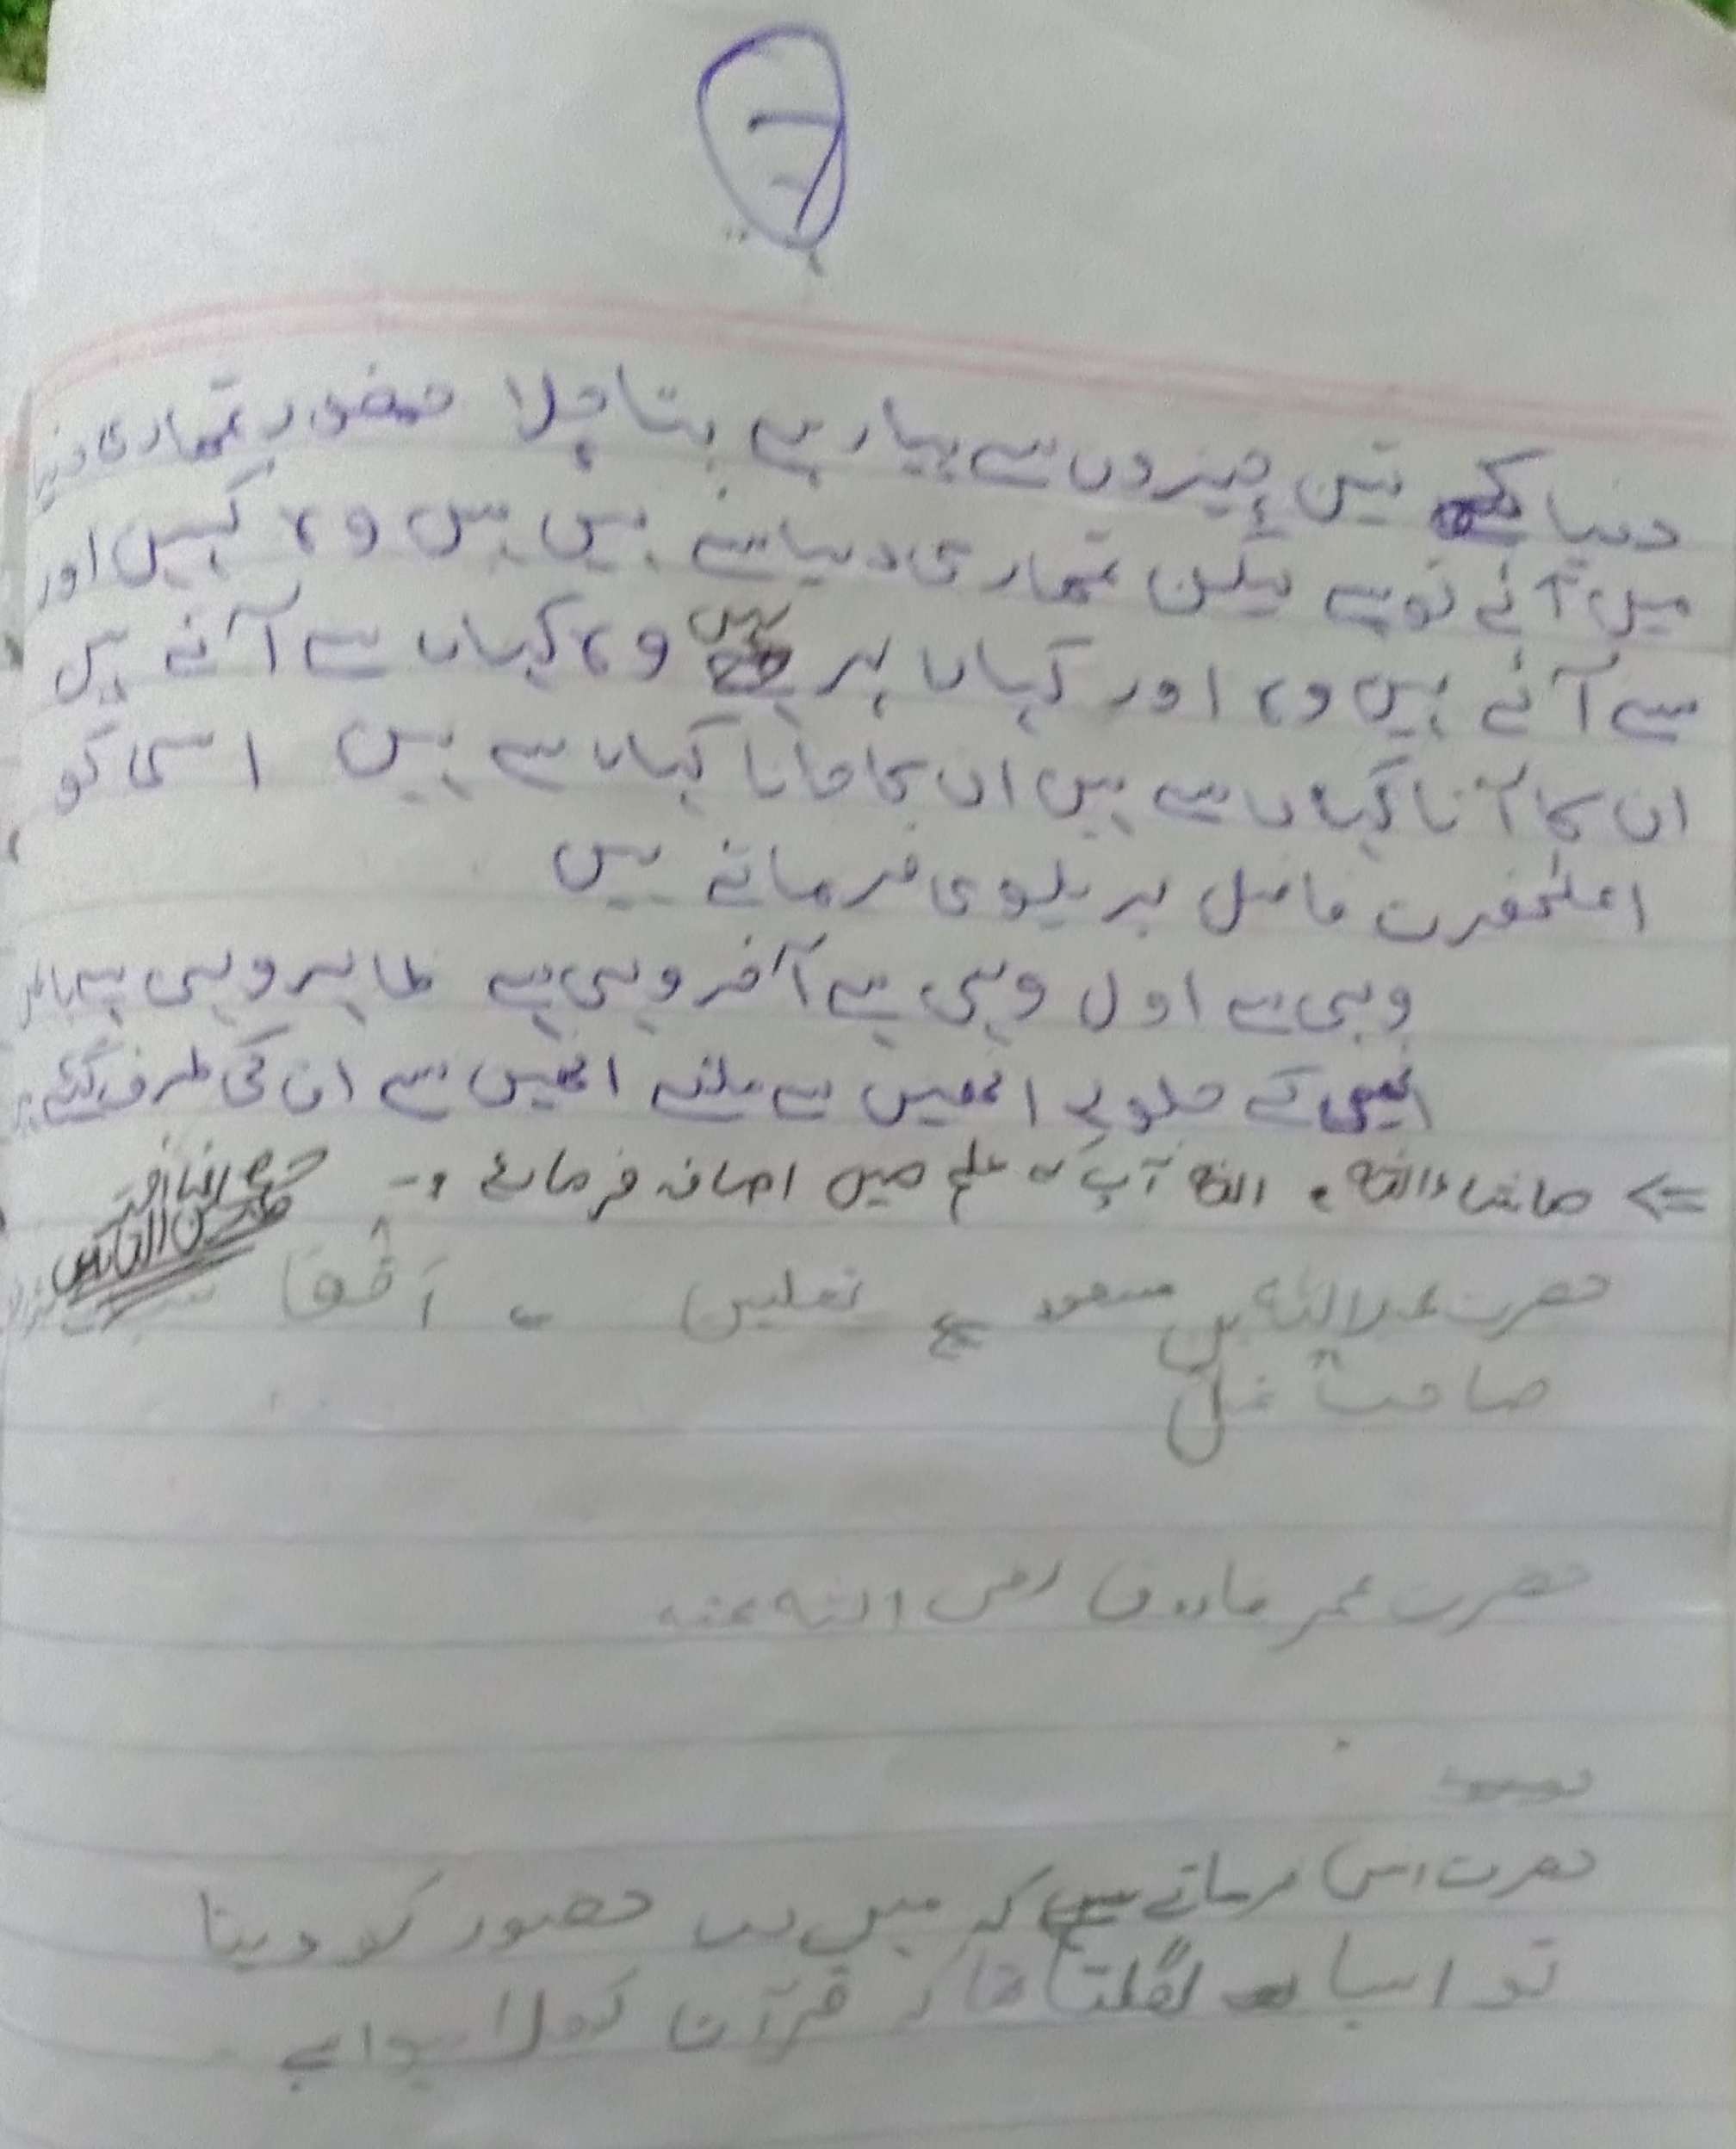 دنیا کے تین چیزوں سے پیار ہے پتا چلا حضور تمھاری دنیا
میں آئے تو ہے لیکن تمھاری دنیا سے نہیں ہیں وہ کہیں اور
سے آئے ہیں وہ اور کہاں پر ہیں وہ کہاں سے آئے ہیں
ان کا آنا کہاں سے ہیں ان کا جانا کہاں سے ہیں اسی کو
اعلحضرت فاضل بریلوی فرماتے ہیں
وہی ہے اول وہی ہے آخر وہی ہے ظاہر وہی ہے باطن
انھیں کے جلوے انھیں سے ملنے انھیں سے ان کی طرف گئے
<= ماشاءاللہ، اللہ آپ کے علم میں اضافہ فرمائے
حضرت عبداللہ بن مسعود نعلین آقا
صاحب
حضرت عمر فاروق رضی اللہ عنہ
حضرت انس فرماتے ہیں کہ میں جب حضور کو دیکھتا
تو ایسا لگتا تھا کہ قرآن کھلا ہوا ہے